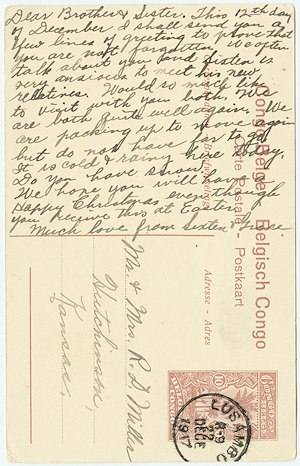 Dear Brother & Sister, This 12th day
of December I shall send you a
few lines of greeting to prove that
you are not forgotten. We often
talk about you and Sixten is
very anxious to meet his new
relatives. Would so much like
to visit with you both. We
are both quite well again. We
are packing up to move again
but do not have far to go.
It is cold & rainy here today.
Do you have snow?
We hope you will have a
Happy Christmas even though
you receive this at Easter.
Much love from Sixten &
Congo Belge - Belgisch Congo
Carte Postale - Postkaart
Adresse - Adres
Mr. & Mrs. R. D. Miller
Hutchinson,
Kansas.
10
LUSAMBO
8-9
22
DECE
1917